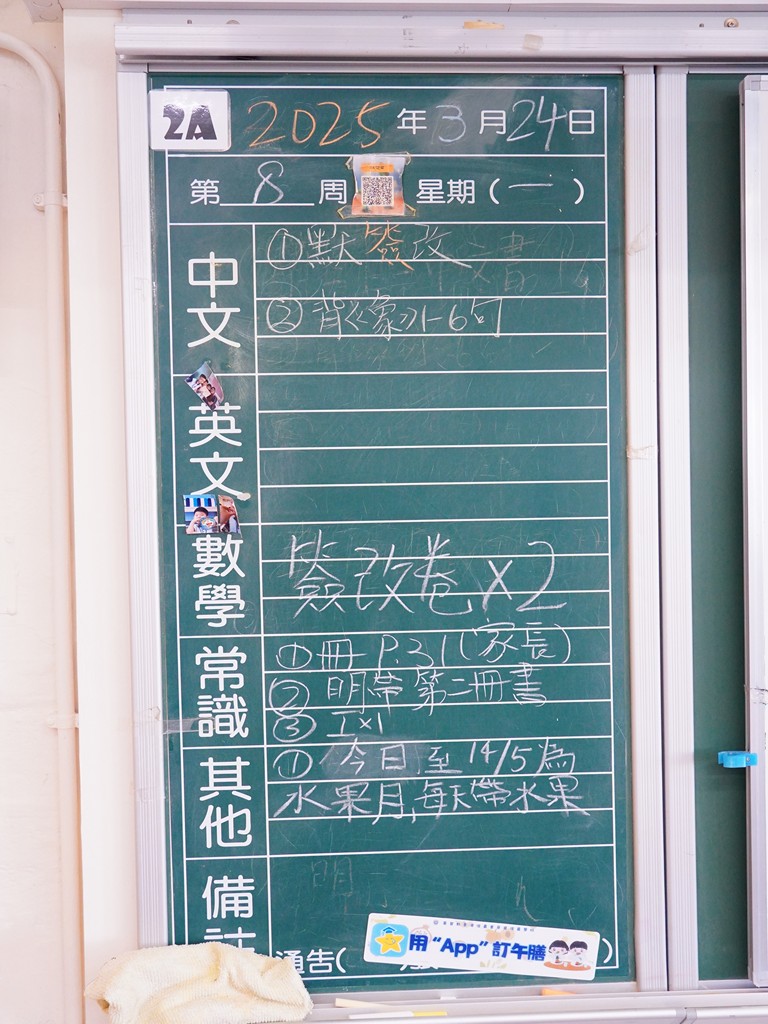 2A
2025年3月24日
第 8 周 星期(一)
中文
①默簽改
②背《象》1-6句
英文
數學
簽改卷x2
常識
①冊 P.31(家長)
②明帶第二冊書
③工x1
其他
①今日至14/5為
水果月,每天帶水果
備註
明
通告( )
用“App”訂午膳